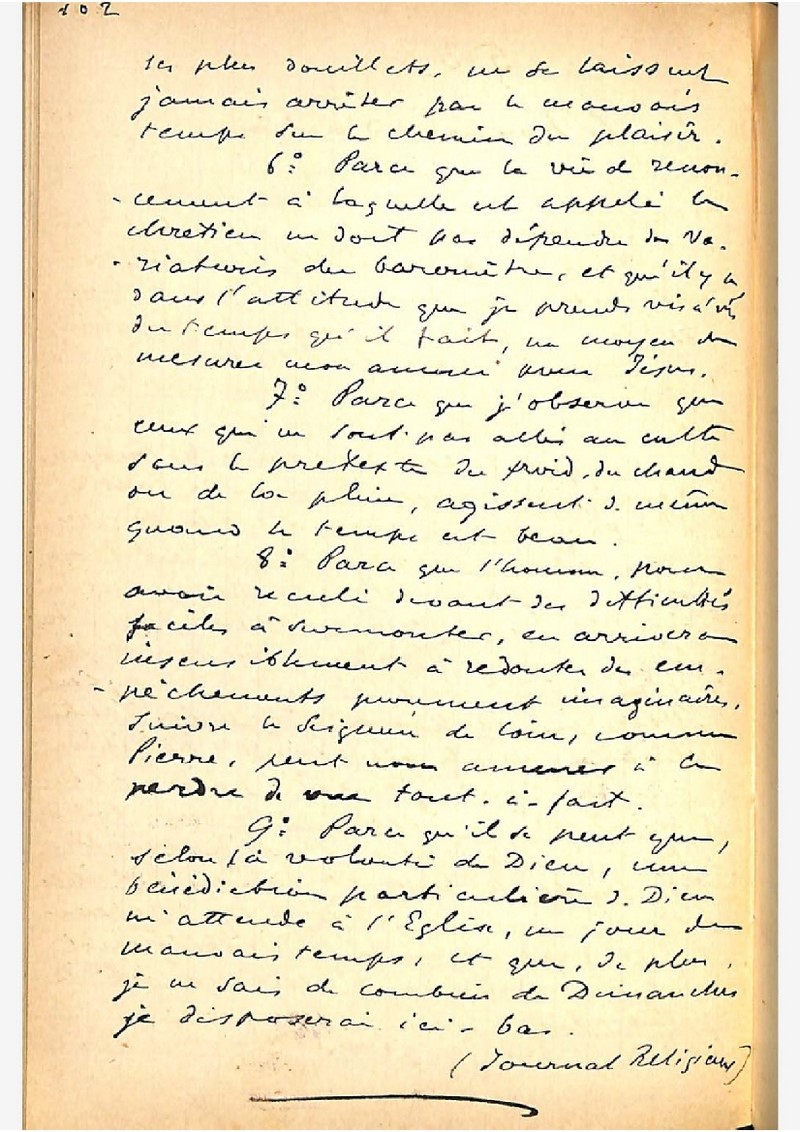 102
les plus douillets, ne se laissent
jamais arrêter par le mauvais
temps sur le chemin du plaisir.
6º: Parce que la vie de renon-
-cement à laquelle est appelé le
chrétien ne doit pas dépendre des va-
-riations du baromètre, et qu'il y a
dans l'attitude que je prends vis à vis
du temps qu'il fait, un moyen de
mesurer mon amour pour Jésus.
7º: Parce que j'observe que
ceux qui ne sont pas allés au culte
sous le prétexte du froid, du chaud
ou de la pluie, agissent de même
quand le temps est beau.
8º: Parce que l'homme, pour
avoir reculé devant des difficultés
faciles à surmonter, en arrivera
insensiblement à redouter des em-
-pêchements purement imaginaires.
Suivre le Seigneur de loin, comme
Pierre, peut nous amener à le
perdre de vue tout-à-fait.
9º: Parce qu'il se peut que,
selon la volonté de Dieu, une
bénédiction particulière de Dieu
m'attende à l'Eglise, un jour de
mauvais temps, et que, de plus,
je ne sais de combien de Dimanches
je disposerai ici-bas.
(Journal Religieux)